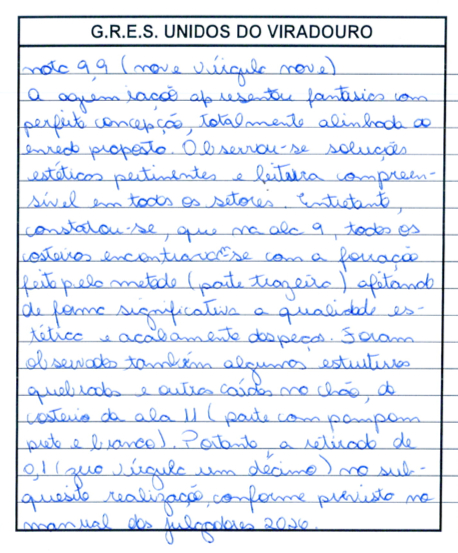 G.R.E.S. UNIDOS DO VIRADOURO
nota 9,9 (nove vírgula nove)
A agremiação apresentou fantasias com
perfeita concepção, totalmente alinhada ao
enredo proposto. Observou-se soluções
estéticas pertinentes e leitura compreen-
sível em todos os setores. Entretanto,
constatou-se, que na ala 9, todos os
costeiros encontravam-se com a forração
feita pela metade (parte trazeira) afetando
de forma significativa a qualidade es-
tética e acabamento das peças. Foram
observados também algumas estruturas
quebradas e outras caídas no chão, do
costeiro da ala 11 (parte com pompom
preto e branco). Portanto a retirada de
0,1 (zero vírgula um décimo) no sub-
quesito realização, conforme previsto no
manual dos julgadores 2026.